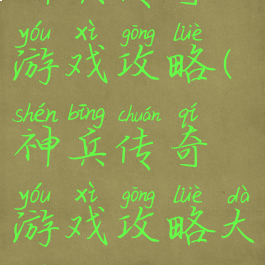 yóu xì gōng lüè
游戏攻略(
shén bīng chuán qí
神兵传奇
yóu xì gōng lüè dà
游戏攻略大